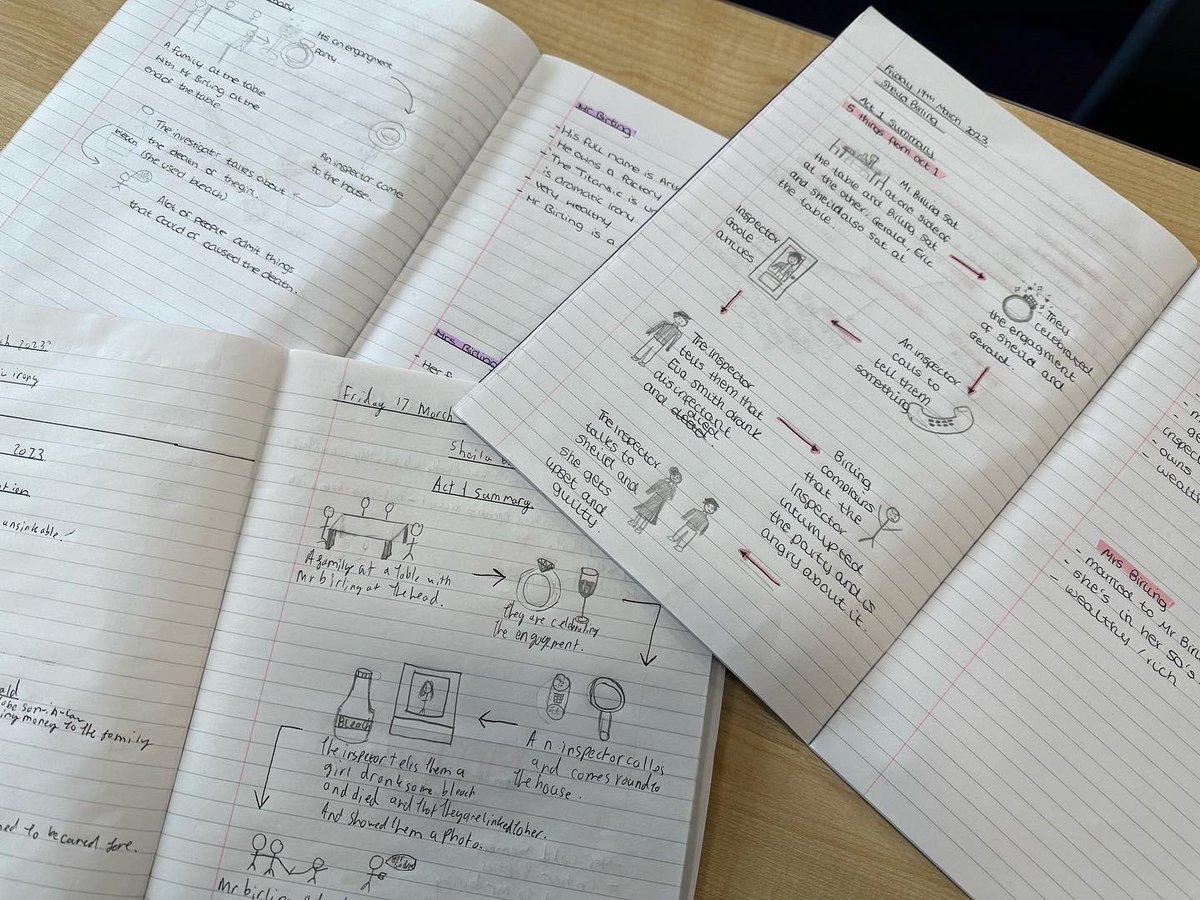 His an engangment
Party
A family at the table
with Mr Birling at the
end of the table.
An inspector came
to the house.
The investigator talkes about
the death of the girl.
(she used beach)
A lot of people admit things
that could of caused the death.
Mr Birling
- His full name is
- He owns a factory
- The Titansic is
is dramatic irony
- very wealthy
Mr Birling is a
Mrs Birling
- Her
Friday 17th March 2023
Sheila Birling
Act 1 Summary
5 things from act 1
Mr. Birling sat
at one side of
the table and Birling sat
at the other. Gerald, Eric
and sheila also sat at
the table.
They
celebrated
the engagment
of sheila and
Gerald.
An inspector
calls to
tell them
something
Inspector
Goole
arrives
The inspector
tells them that
Eva smith drank
disinfectant
and died
Birling
complains
that the
Inspector
inturrupted
the party and is
angry about it.
The inspector
talks to
sheila and
she gets
upset and
guilty.
- owns
- wealt
Mrs Birling
- married to Mr Birl
- she's in her 50's.
- wealthy / rich
2023
irony
2023
unsinkable.
money to the family
to be cared fore.
Friday 17 March
Sheila
Act 1 Summary
A family at a table with
Mr birling at the head.
they are celebrating
the engagement.
An inspector calles
and comes round to
the house.
Bleach
The inspector tells them a
girl drank some bleach
and died and that they are linked to her.
And showed them a photo.
Mr birling